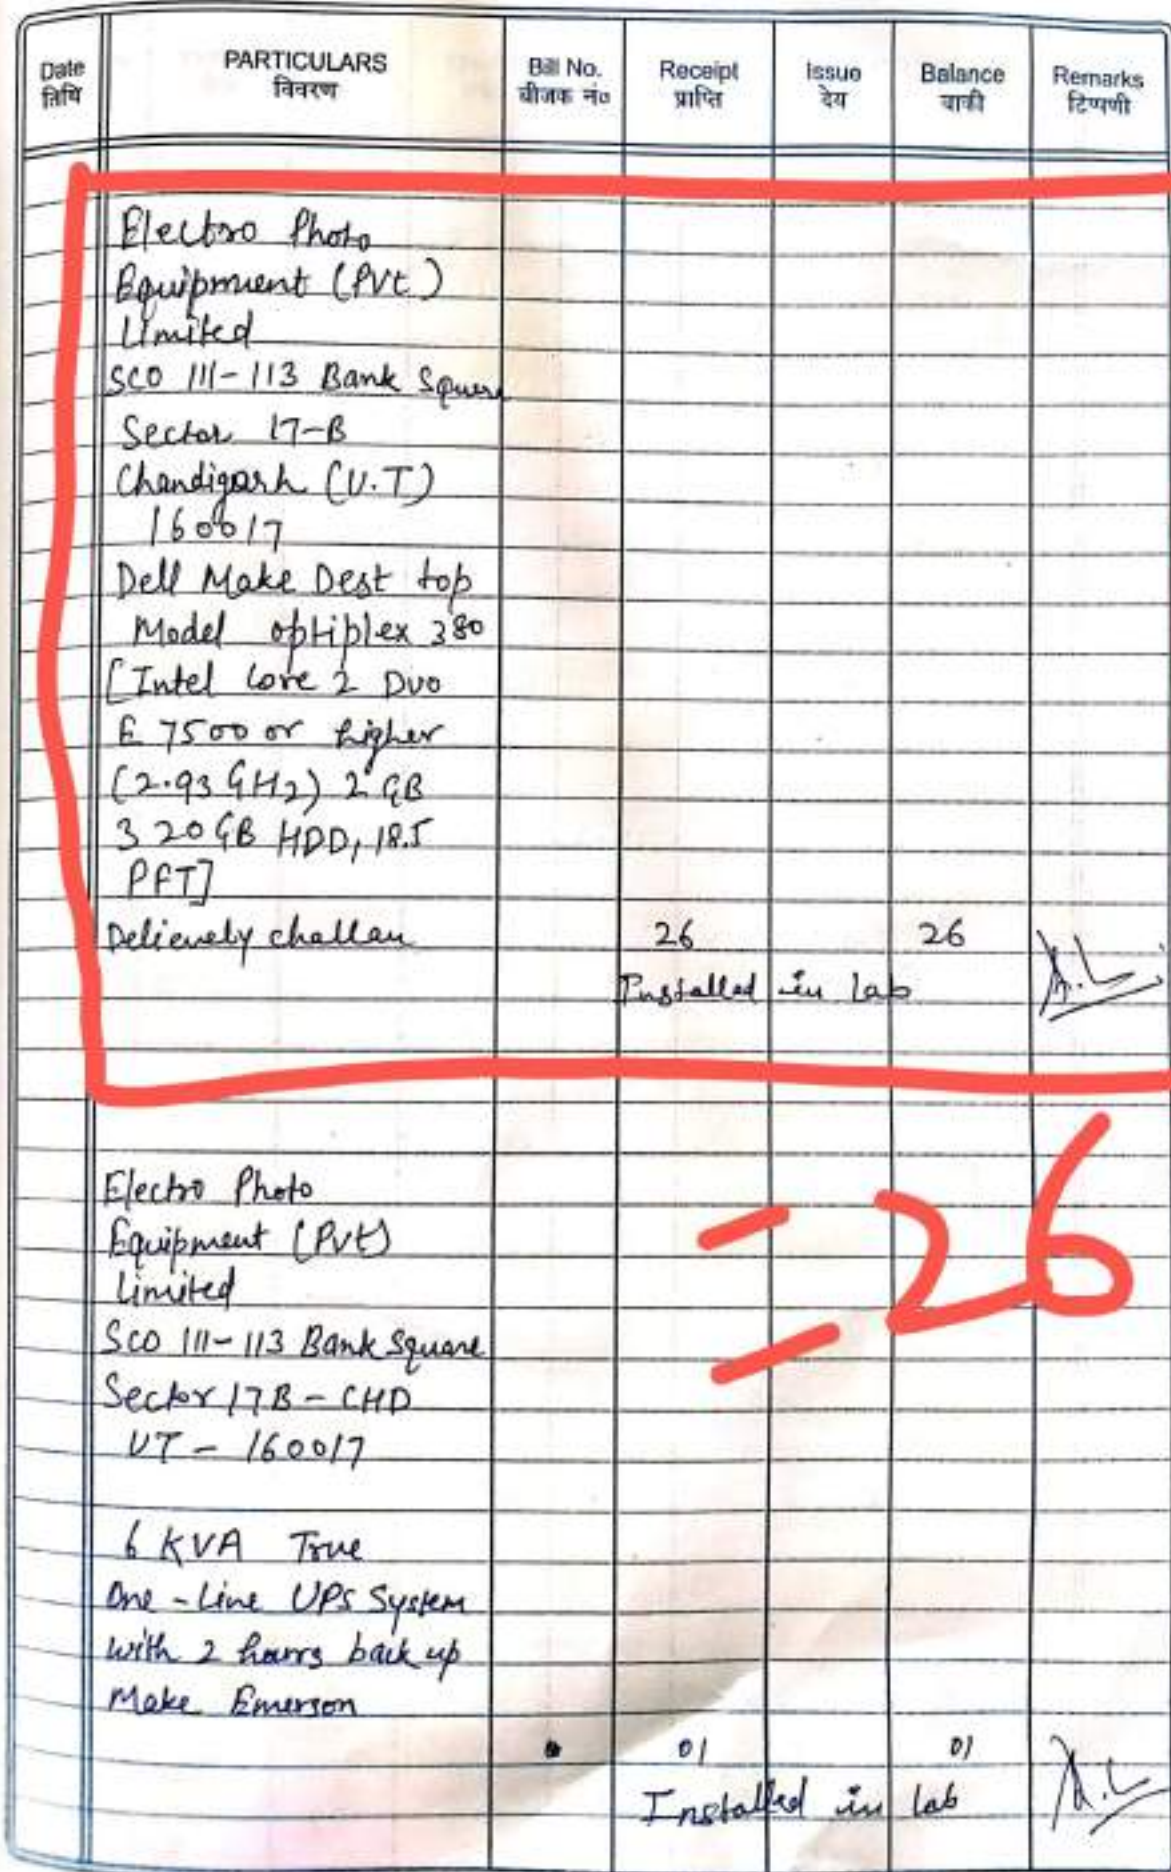 Date PARTICULARS Bill No. Receipt Issue Balance Remarks
तिथि विवरण बीजक नं० प्राप्ति देय बाकी टिप्पणी
Electro Photo
Equipment (Pvt)
Limited
SCO 111-113 Bank Square
Sector 17-B
Chandigarh (U.T)
160017
Dell Make Dest top
Model optiplex 380
[Intel Core 2 Duo
E 7500 or higher
(2.93 GHz) 2 GB
320 GB HDD, 18.5
PFT]
26 26
Installed in lab
= 26
Electro Photo
Equipment (Pvt)
Limited
SCO 111-113 Bank Square
Sector 17B - CHD
UT - 160017
6 KVA True
One-Line UPS System
with 2 hours back up
Make Emerson
01 01
Installed in lab